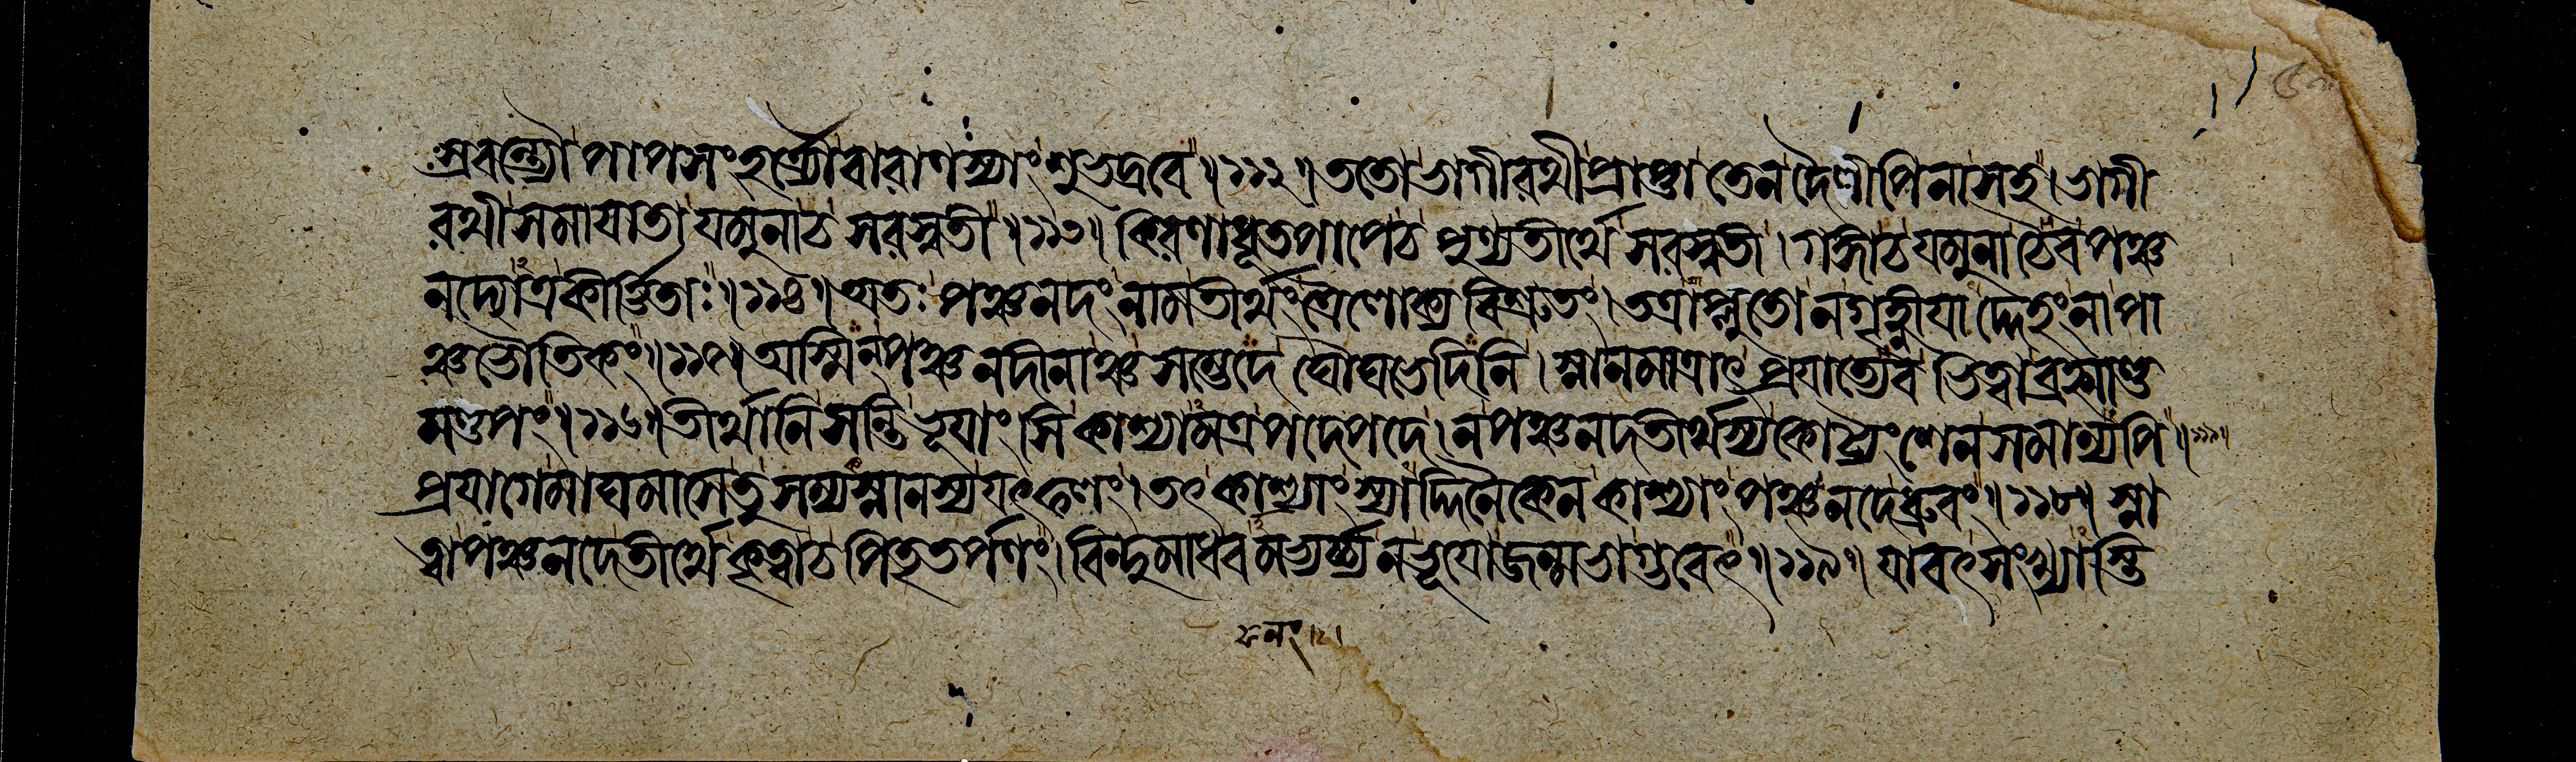 স্রবন্ত্যৌ পাপসংহর্ত্র্যৌ বারাণস্যাং শুভদ্রবে ॥ ১১২ ॥ ততো ভাগীরথী প্রাপ্তা তেন দৈলীপিনা সহ । ভাগী
রথী সমাযাতা যমুনা চ সরস্বতী ॥ ১১৩ ॥ কিরণাধূতপাপে চ পুণ্যতীর্থে সরস্বতী । গঙ্গা চ যমুনা চৈব পঞ্চ
নদ্যোত্র কীর্ত্তিতাঃ ॥ ১১৪ ॥ অতঃ পঞ্চনদং নাম তীর্থং ত্রৈলোক্য বিশ্রুতং । তত্রাপ্লুতো ন গৃহ্ণীযাদ্দেহং না পা
ঞ্চভৌতিকং ॥ ১১৫ ॥ অস্মিন্ পঞ্চনদীনাঞ্চ সম্ভেদে ঘৌঘভেদিনি । স্নানমাত্রাৎ প্রযাত্যেব ভিত্বা ব্রহ্মাণ্ড
মণ্ডপং ॥ ১১৬ ॥ তীর্থানি সন্তি ভূযাংসি কাশ্যামত্র পদে পদে । ন পঞ্চনদতীর্থস্য কোট্যংশেন সমান্যপি ॥ ১১৭ ॥
প্রযাগে মাঘমাসে তু সম্যক্স্নানস্য যৎফলং । তৎ কাশ্যাং স্যাদ্দিনৈকেন কাশ্যাং পঞ্চনদে ধ্রুবং ॥ ১১৮ ॥ স্না
ত্বা পঞ্চনদে তীর্থে কৃত্বা চ পিতৃতর্পণং । বিন্দুমাধবমভ্যর্চ্য ন ভূযো জন্মভাগ্ভবেৎ ॥ ১১৯ ॥ যাবৎসংখ্যাস্তি
ফলং ॥